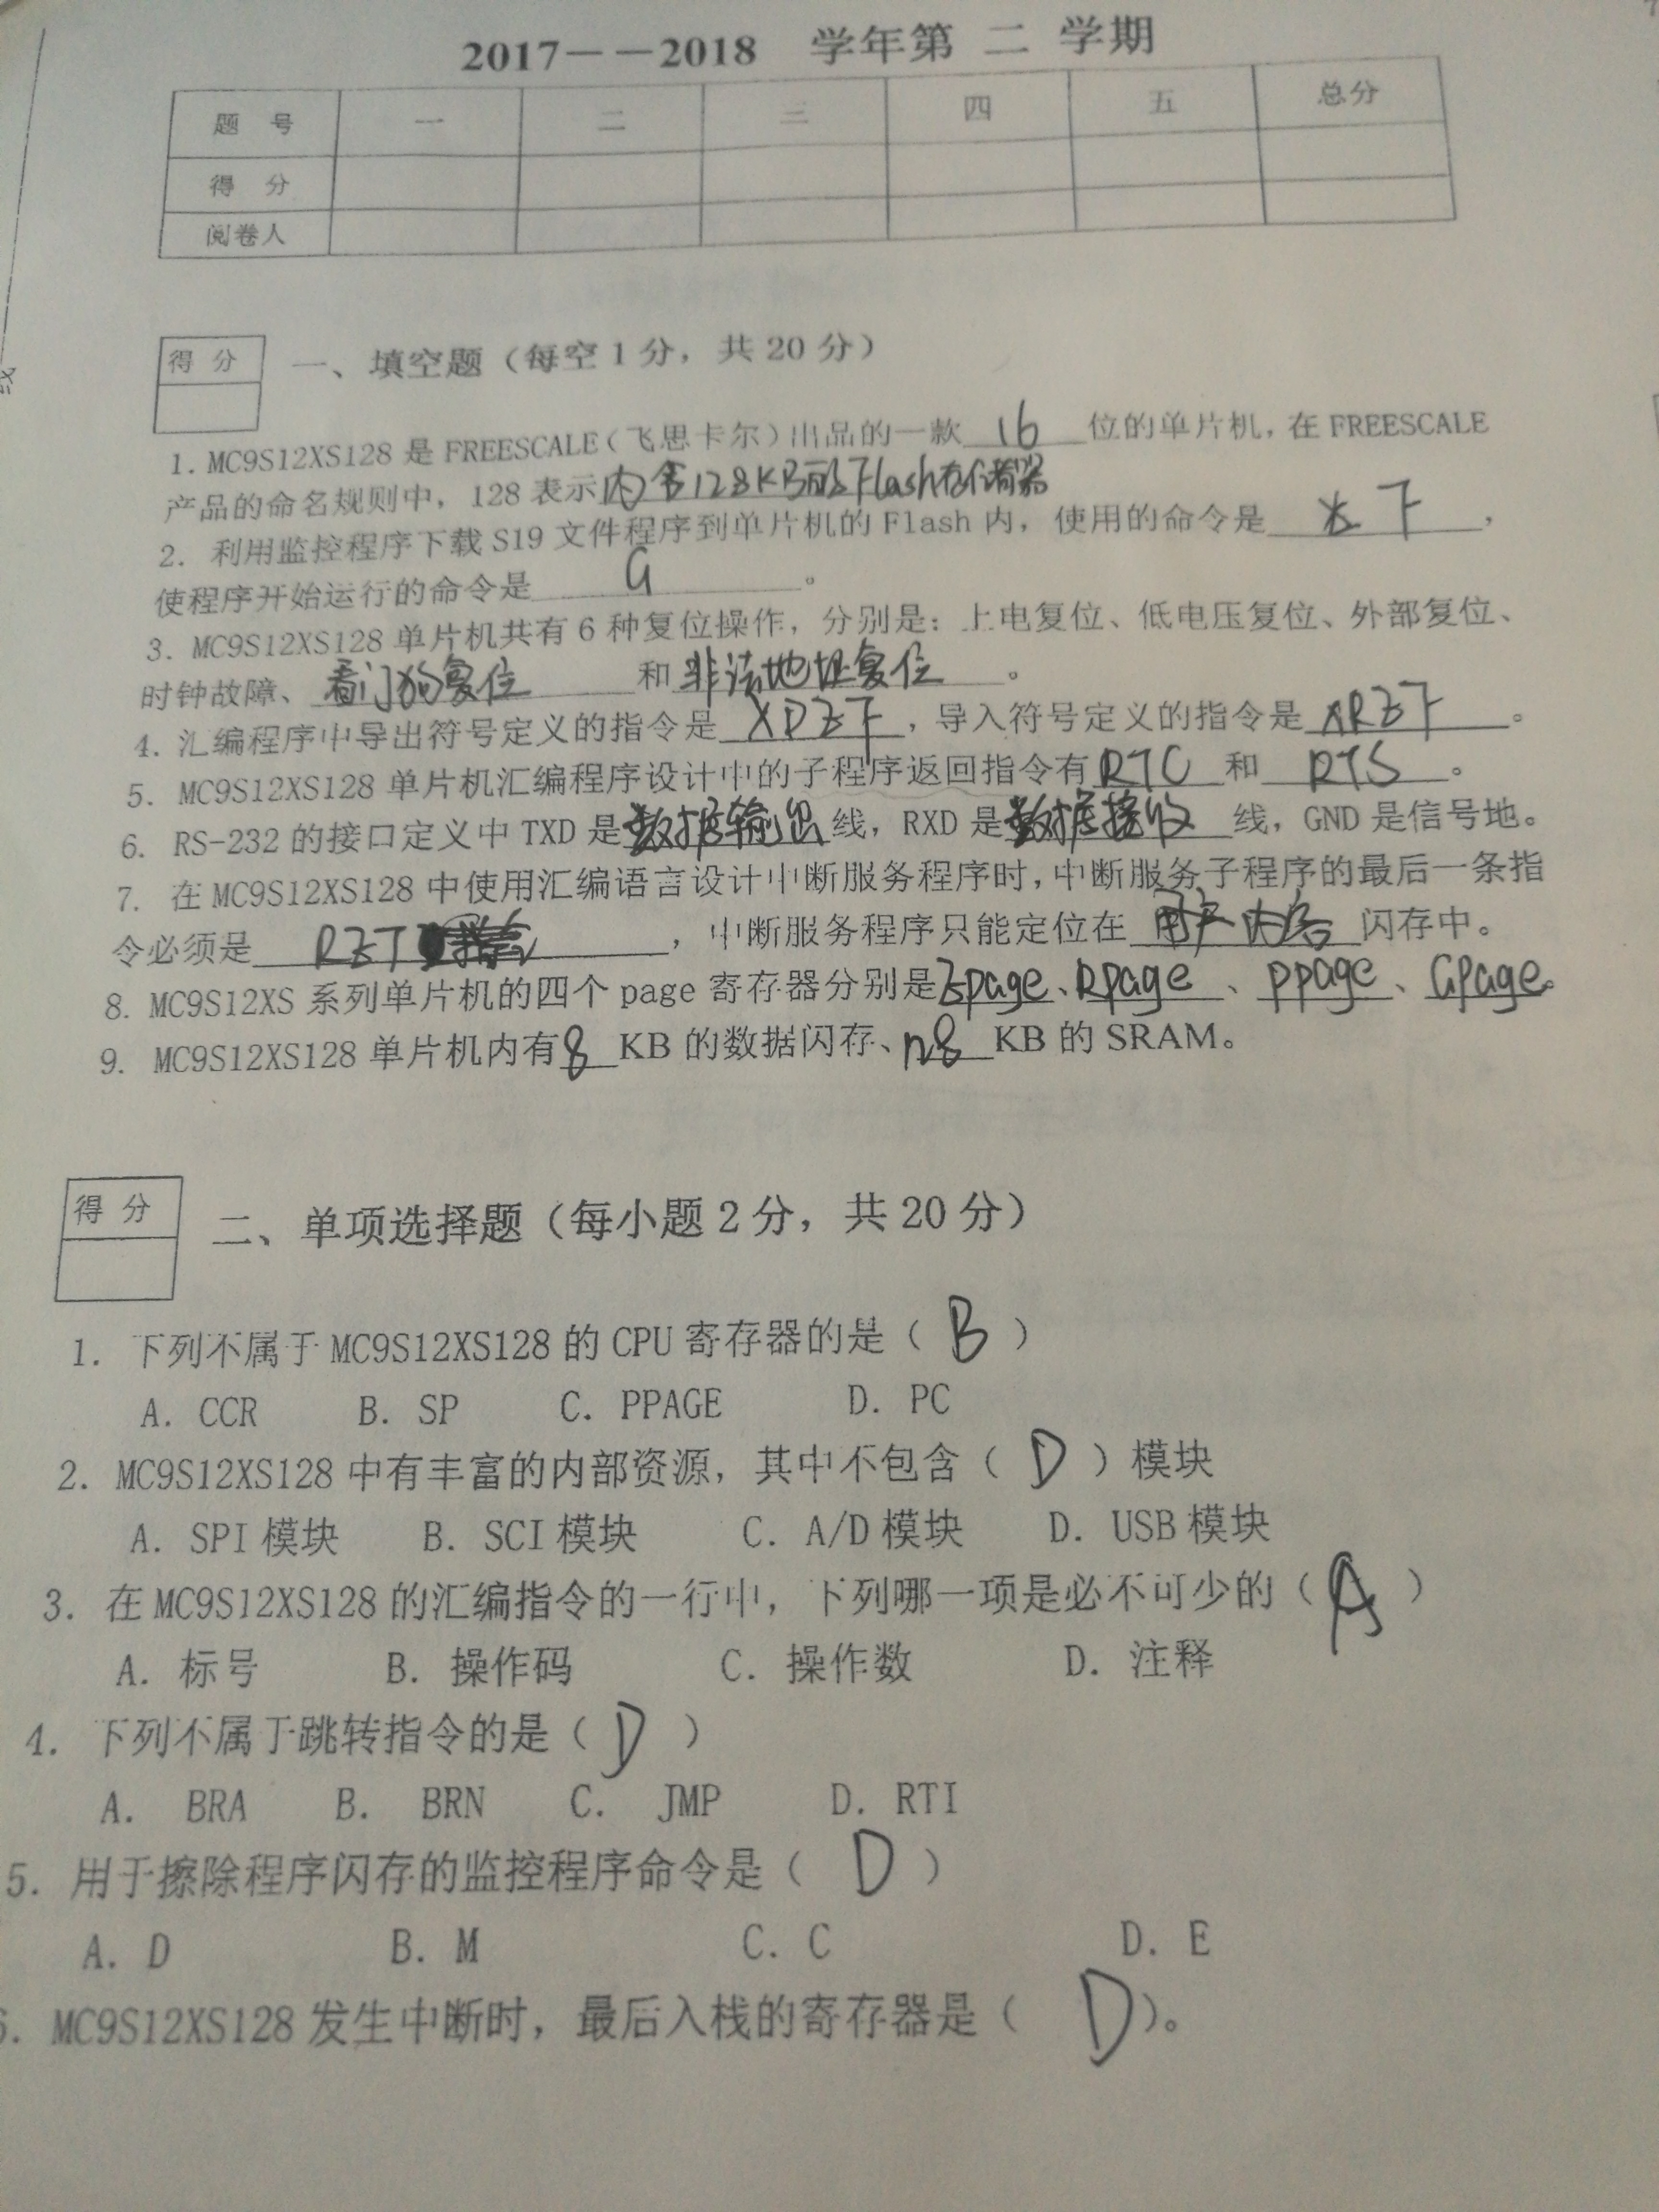 2017－－2018 学年第 二 学期
题 号 一 二 三 四 五 总分
得 分
阅卷人
得 分
一、填空题（每空 1 分，共 20 分）
1. MC9S12XS128 是 FREESCALE（飞思卡尔）出品的一款 16 位的单片机，在 FREESCALE
产品的命名规则中，128 表示内含128KB的Flash存储器
2. 利用监控程序下载 S19 文件程序到单片机的 Flash 内，使用的命令是 ，
使程序开始运行的命令是 G 。
3. MC9S12XS128 单片机共有 6 种复位操作，分别是：上电复位、低电压复位、外部复位、
时钟故障、 看门狗复位 和 非法地址复位 。
4. 汇编程序中导出符号定义的指令是 XDEF ，导入符号定义的指令是 XREF 。
5. MC9S12XS128 单片机汇编程序设计中的子程序返回指令有 RTC 和 RTS 。
6. RS-232 的接口定义中 TXD 是数据输出线，RXD 是数据接收 线，GND 是信号地。
7. 在 MC9S12XS128 中使用汇编语言设计中断服务程序时，中断服务子程序的最后一条指
令必须是 ，中断服务程序只能定位在 闪存中。
8. MC9S12XS 系列单片机的四个 page 寄存器分别是Epage、Rpage 、 Ppage 、 Gpage。
9. MC9S12XS128 单片机内有 8 KB 的数据闪存、 KB 的 SRAM。
得 分
二、单项选择题（每小题 2 分，共 20 分）
1. 下列不属于 MC9S12XS128 的 CPU 寄存器的是（ B ）
A. CCR B. SP C. PPAGE D. PC
2. MC9S12XS128 中有丰富的内部资源，其中不包含（ D ）模块
A. SPI 模块 B. SCI 模块 C. A/D 模块 D. USB 模块
3. 在 MC9S12XS128 的汇编指令的一行中，下列哪一项是必不可少的（ A ）
A. 标号 B. 操作码 C. 操作数 D. 注释
4. 下列不属于跳转指令的是（ D ）
A. BRA B. BRN C. JMP D. RTI
5. 用于擦除程序闪存的监控程序命令是（ D ）
A. D B. M C. C D. E
6. MC9S12XS128 发生中断时，最后入栈的寄存器是（ D ）。